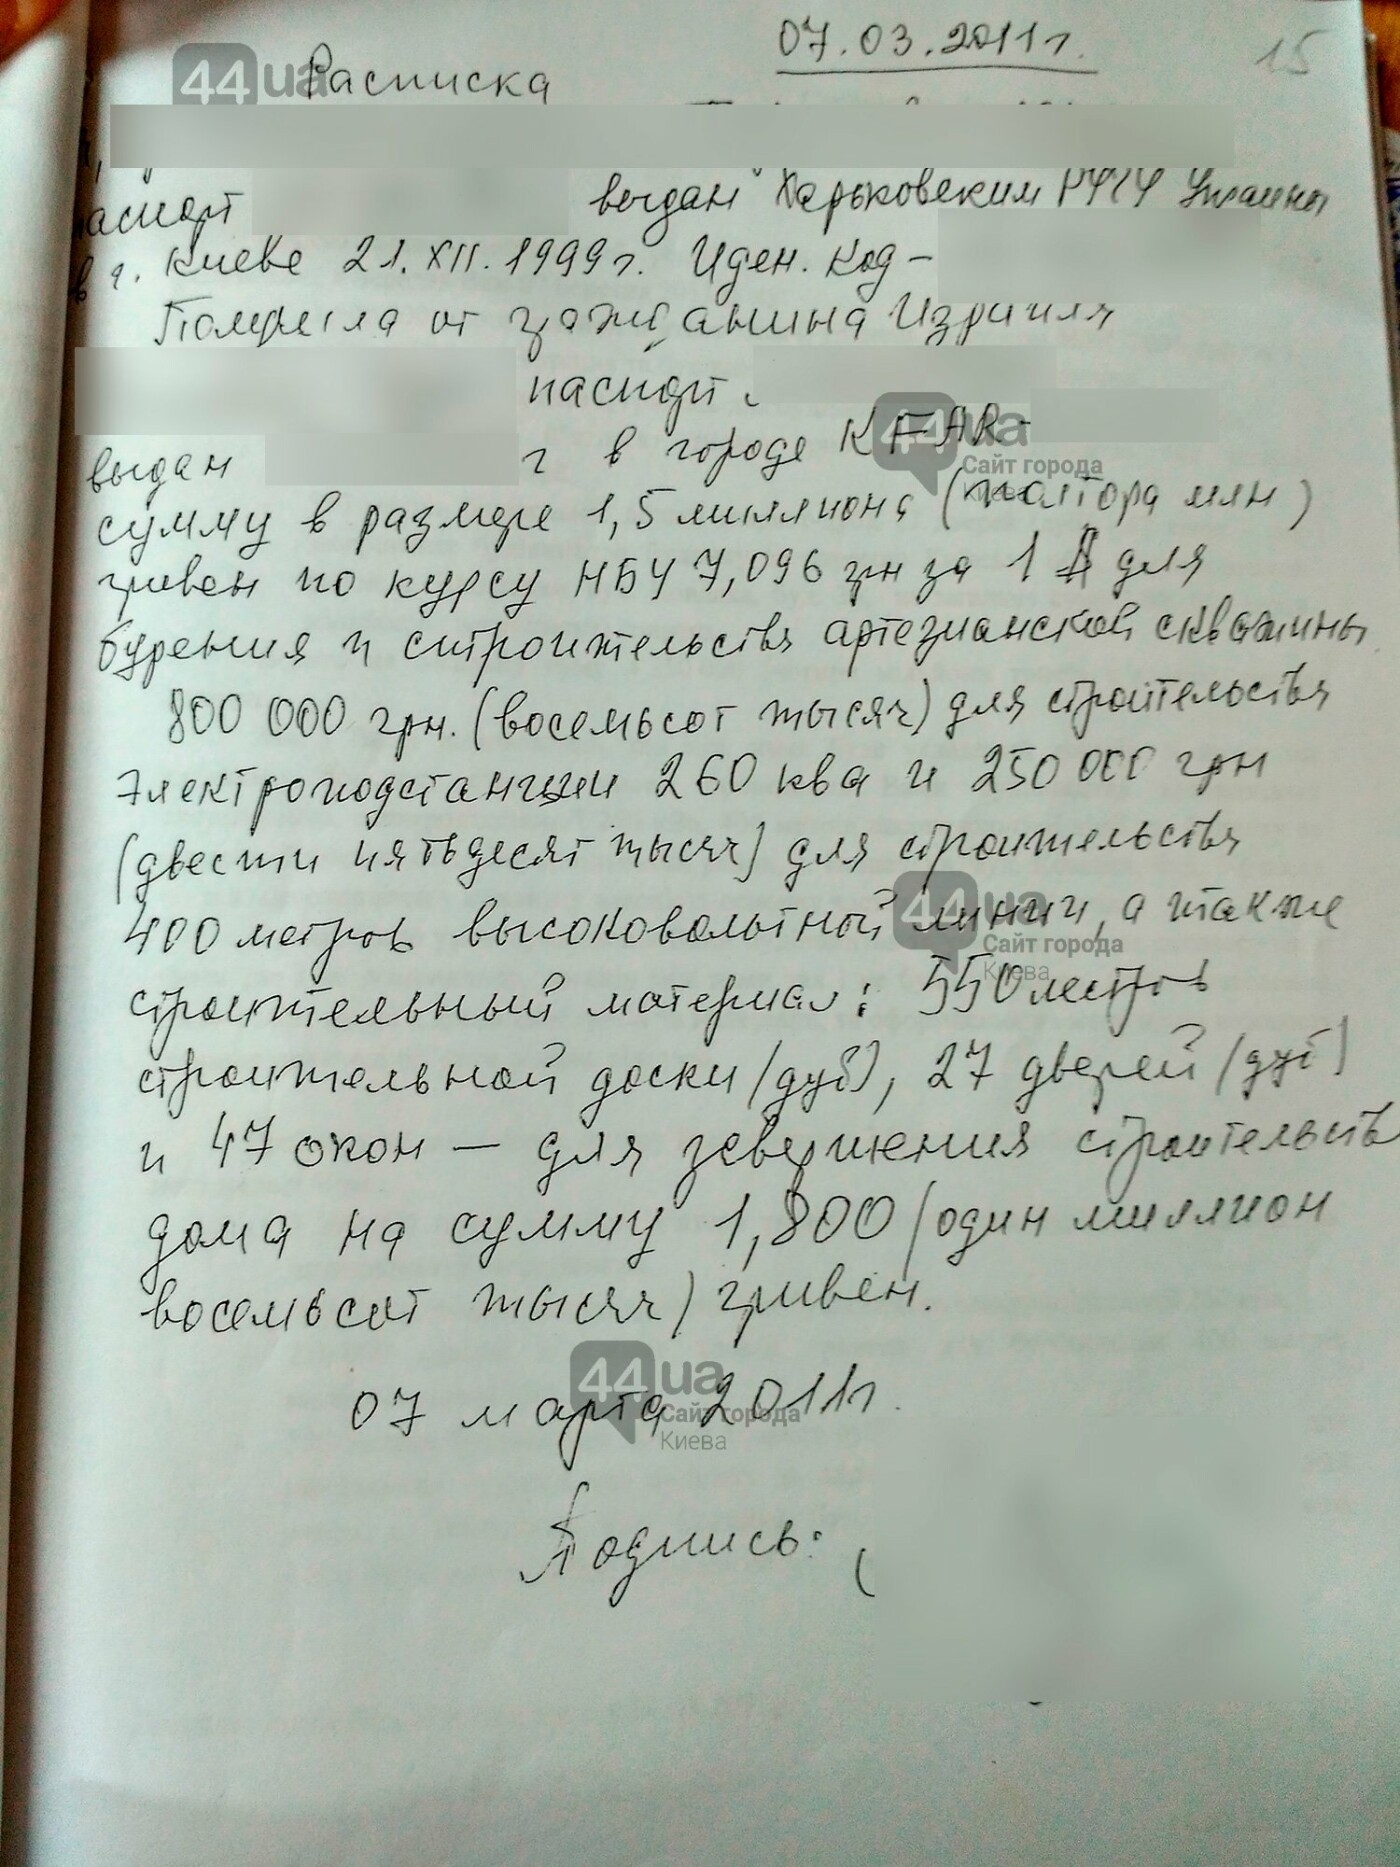 07.03.2011г.
15
44ua
Расписка
паспорт выдан Харьковским РУГУ Украины
в г. Киеве 21.XII.1999г. Иден. код –
Получила от гражданина Израиля
паспорт
выдан г в городе KFAR-
44ua
Сайт города
Киева
сумму в размере 1,5 миллиона (полтора млн)
гривен по курсу НБУ 7,096 грн за 1 $ для
бурения и строительства артезианской скважины
800 000 грн. (восемьсот тысяч) для строительства
электроподстанции 260 ква и 250 000 грн
(двести пятьдесят тысяч) для строительства
400 метров высоковольтной линии, а также
44ua
Сайт города
Киева
строительный материал: 550 метров
строительной доски (дуб), 27 дверей (дуб)
и 47 окон — для завершения строительств
дома на сумму 1,800 (один миллион
восемьсот тысяч) гривен.
07 марта 2011г.
44ua
Сайт города
Киева
Подпись: (